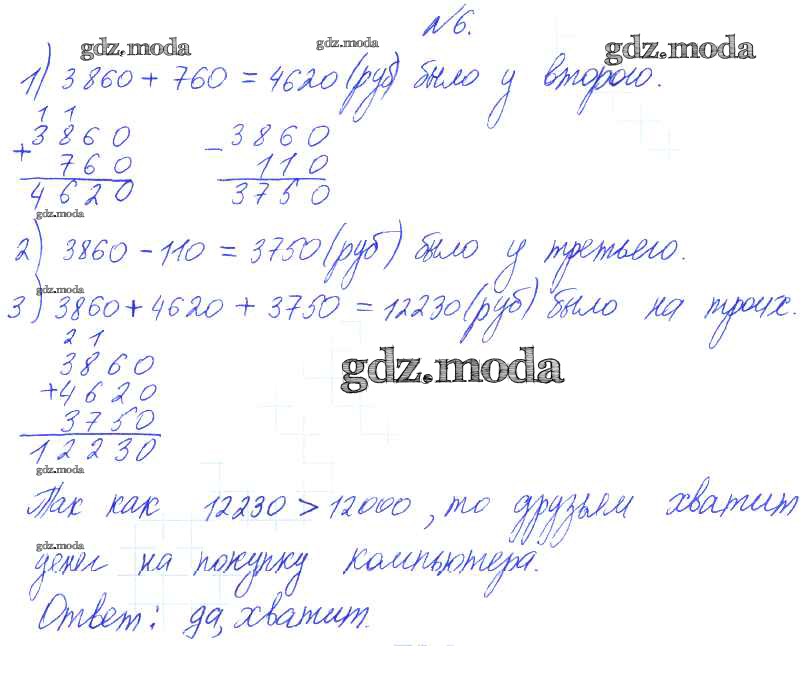 №6.
gdz.moda
gdz.moda
gdz.moda
1) 3860 + 760 = 4620 (руб) было у второго.
1 1
3860 3860
+ 760 - 110
4620 3750
gdz.moda
2) 3860 - 110 = 3750 (руб) было у третьего.
gdz.moda
3) 3860 + 4620 + 3750 = 12230 (руб) было на троих.
2 1
3860
+4620
3750
12230
gdz.moda
gdz.moda
Так как 12230 > 12000, то друзьям хватит
gdz.moda
денег на покупку компьютера.
Ответ: да, хватит.